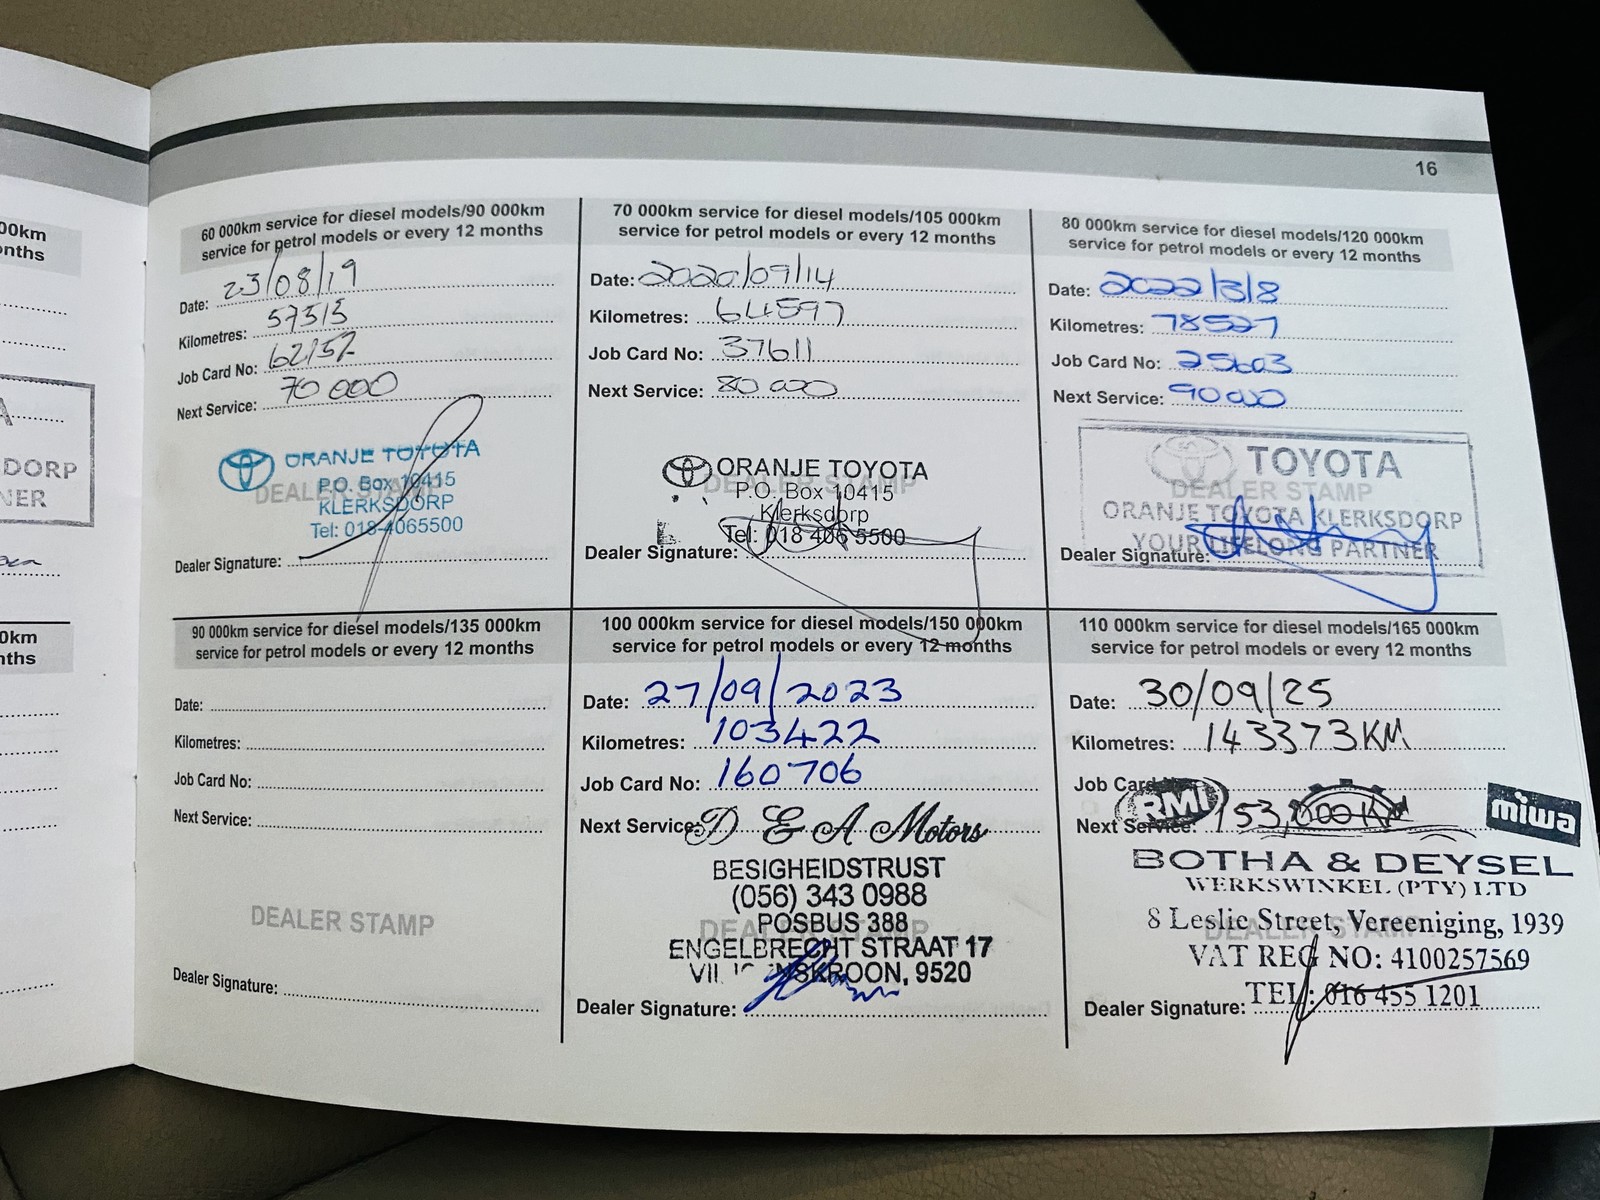 16
00km
nths
A
DORP
NER
0km
ths
60 000km service for diesel models/90 000km
service for petrol models or every 12 months
Date: 23/08/19
Kilometres: 57315
Job Card No: 62152
Next Service: 70 000
ORANJE TOYOTA
DEALER STAMP
P.O. Box 10415
KLERKSDORP
Tel: 018-4065500
Dealer Signature:
70 000km service for diesel models/105 000km
service for petrol models or every 12 months
Date: 2020/09/14
Kilometres: 64597
Job Card No: 37611
Next Service: 80 000
ORANJE TOYOTA
DEALER STAMP
P.O. Box 10415
Klerksdorp
Tel: 018 406 5500
Dealer Signature:
80 000km service for diesel models/120 000km
service for petrol models or every 12 months
Date: 2022/3/8
Kilometres: 78527
Job Card No: 25603
Next Service: 90000
TOYOTA
DEALER STAMP
ORANJE TOYOTA KLERKSDORP
YOUR LIFELONG PARTNER
Dealer Signature:
90 000km service for diesel models/135 000km
service for petrol models or every 12 months
Date:
Kilometres:
Job Card No:
Next Service:
DEALER STAMP
Dealer Signature:
100 000km service for diesel models/150 000km
service for petrol models or every 12 months
Date: 27/09/2023
Kilometres: 103422
Job Card No: 160706
Next Service: D E A Motors
BESIGHEIDSTRUST
(056) 343 0988
POSBUS 388
DEALER STAMP
ENGELBRECHT STRAAT 17
9520
Dealer Signature:
110 000km service for diesel models/165 000km
service for petrol models or every 12 months
Date: 30/09/25
Kilometres: 143373KM
Job Card No:
RMI
miwa
Next Service: 153,000 KM
BOTHA & DEYSEL
WERKSWINKEL (PTY) LTD
8 Leslie Street, Vereeniging, 1939
DEALER STAMP
VAT REG NO: 4100257569
TEL: 016 455 1201
Dealer Signature: